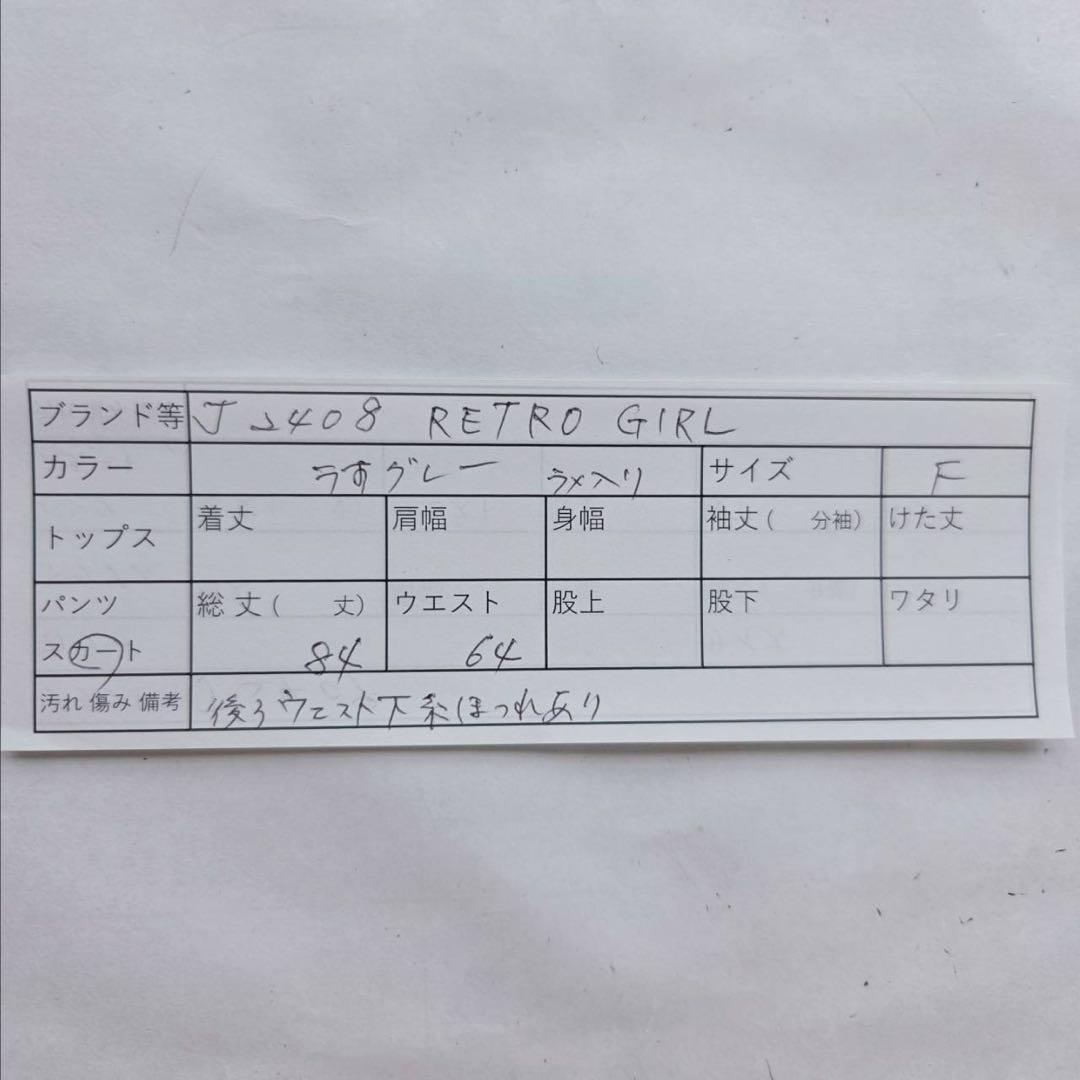 ブランド等 J2408 RETRO GIRL
カラー うすグレー ラメ入り サイズ F
トップス 着丈 肩幅 身幅 袖丈( 分袖) けた丈
パンツ 総丈( 丈) ウエスト 股上 股下 ワタリ
スカート 84 64
汚れ 傷み 備考 後ろウエスト下糸ほつれあり